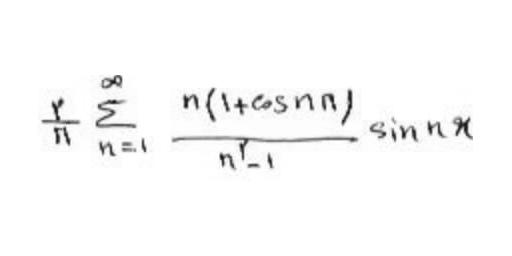 ۲/π ∑_{n=1}^{∞} n(1+cos nπ)/(n^۲-1) sin nx